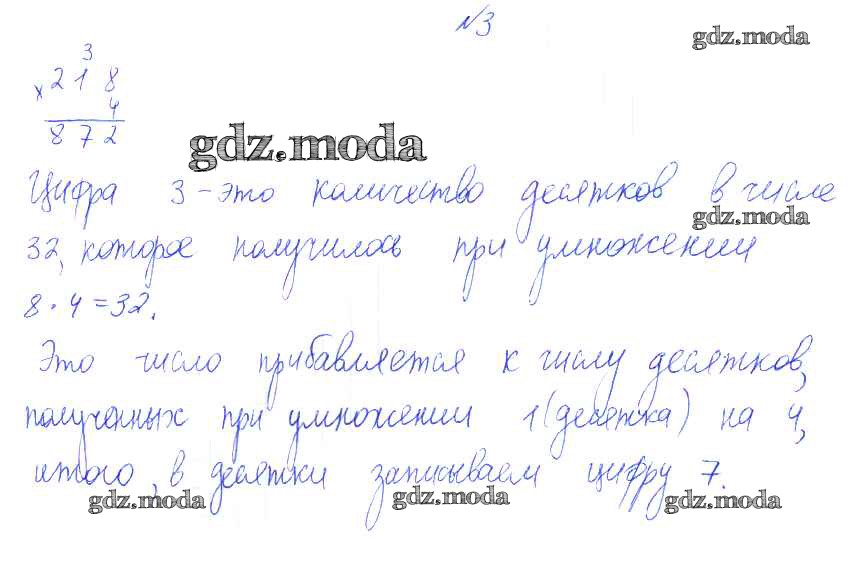 №3
gdz.moda
3
× 218
4
872
gdz.moda
Цифра 3 - это количество десятков в числе
gdz.moda
32, которое получилось при умножении
8 · 4 = 32.
Это число прибавляется к числу десятков,
полученных при умножении 1 (десятка) на 4,
итого, в десятки записываем цифру 7.
gdz.moda gdz.moda gdz.moda